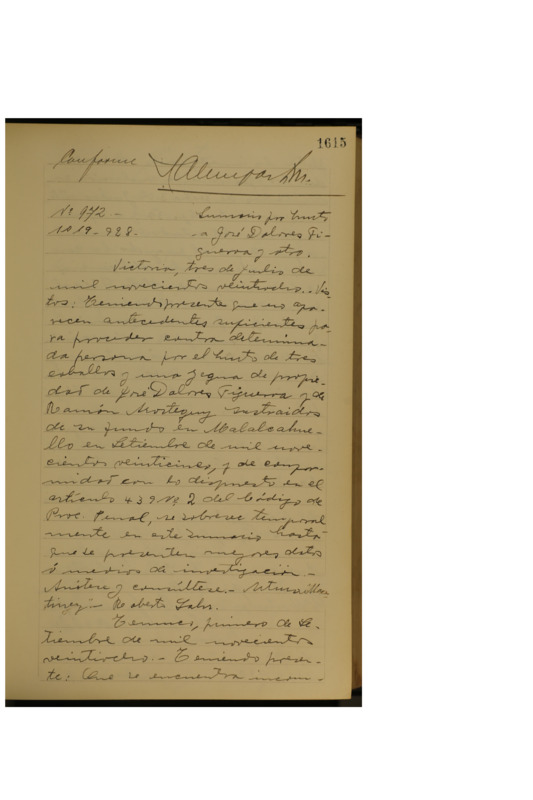 1615
Conforme
Nº 972.- Sumario por hurto
1019-928. a José Dolores Fi-
guerra y otro.
Victoria, tres de Julio de
mil novecientos veintiocho.. Vis-
tos: Teniendo presente que no apa-
recen antecedentes suficientes pa-
ra proceder contra determina-
da persona por el hurto de tres
caballos y una yegua de propie-
dad de José Dolores Figuerra y de
Ramón sustraidos
de su fundo en Malalcahue-
llo en Setiembre de mil nove-
cientos veinticinco, y de confor-
midad con lo dispuesto en el
artículo 439 Nº 2 del Código de
Proc. Penal, se sobresee temporal
mente en este sumario hasta
que se presenten mejores datos
ó medios de investigación.-
Anótese y consúltese.- Arturo Mar-
tinez.- Roberto
Temuco, primero de Se-
tiembre de mil novecientos
veintiocho.- Teniendo presen-
te: Que se encuentra incom-